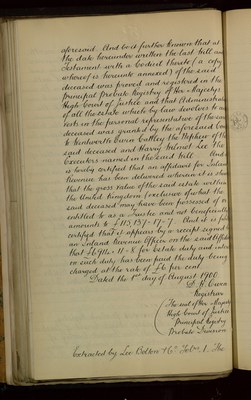 aforesaid. And be it further known that at
the date hereunder written the last Will and
Testament with a Codicil thereto (a copy
whereof is hereunto annexed) of the said
deceased was proved and registered in the
Principal Probate Registry of Her Majesty's
High Court of Justice and that Administration
of all the estate which by law devolves to and
vests in the personal representative of the said
deceased was granted by the aforesaid Court
to Kenilworth Erwin the Nephew of the
said deceased and Harry Talmot Lee the
Executors named in the said Will And
is hereby certified that an affidavit for Inland
Revenue has been delivered wherein it is shewn
that the gross value of the said estate within
the United Kingdom (exclusive of what the
said deceased may have been possessed of or
entitled to as a Trustee and not beneficially)
amounts to And it is further
certified that it appears by a receipt signed by
an Inland Revenue Officer on the said Affidavit
that for estate duty and interest
on such duty has been paid the duty being
charged at the rate of £6 per cent
Dated the 1st day of August 1900
Owen
Registrar
The seal of Her Majesty's
High Court of Justice
Principal Registry
Probate Division
Extracted by Lee Bolton & Co Solrs, 1, The